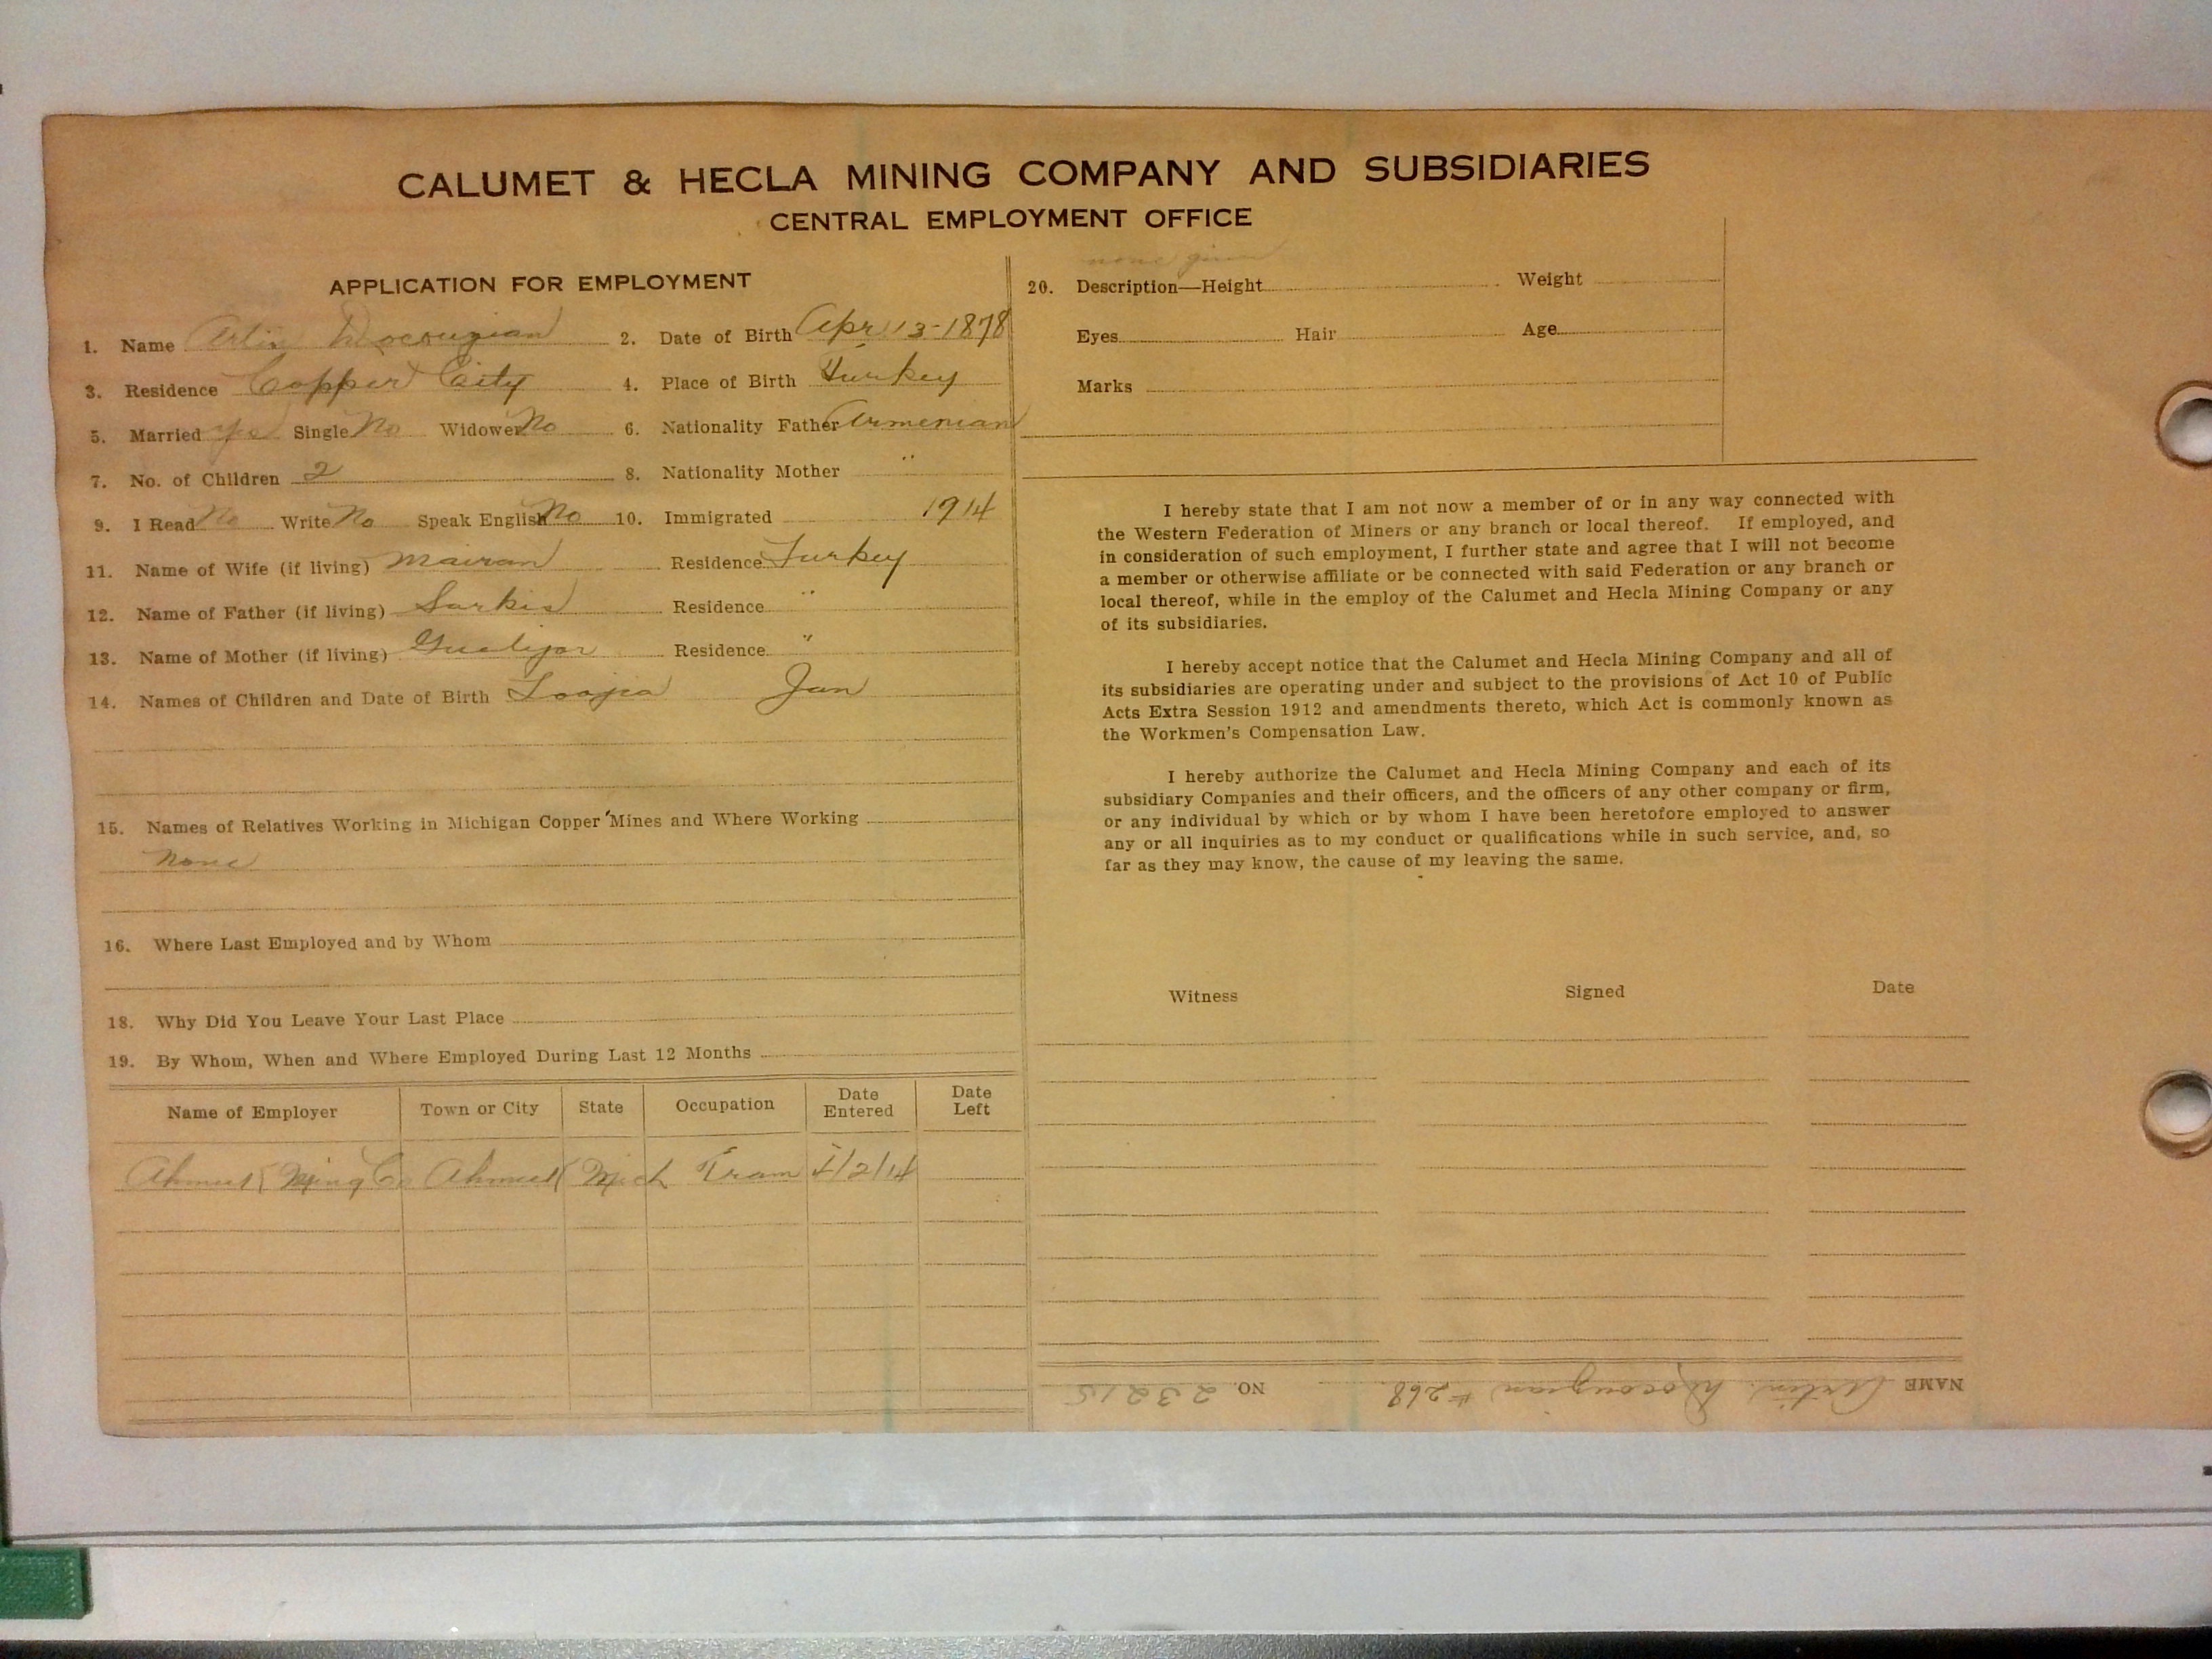 CALUMET & HECLA MINING COMPANY AND SUBSIDIARIES
CENTRAL EMPLOYMENT OFFICE
APPLICATION FOR EMPLOYMENT
1. Name Artin 2. Date of Birth Apr 13-1878
3. Residence Copper City 4. Place of Birth Turkey
5. Married Yes Single No Widower No 6. Nationality Father Armenian
7. No. of Children 2 8. Nationality Mother "
9. I Read No Write No Speak English No 10. Immigrated 1914
11. Name of Wife (if living) Mairan Residence Turkey
12. Name of Father (if living) Sarkis Residence "
13. Name of Mother (if living) Residence "
14. Names of Children and Date of Birth Jan
15. Names of Relatives Working in Michigan Copper Mines and Where Working
None
16. Where Last Employed and by Whom
18. Why Did You Leave Your Last Place
19. By Whom, When and Where Employed During Last 12 Months
Name of Employer Town or City State Occupation Date Entered Date Left
Ahmeek Ming Co Ahmeek Mich Tram 4/2/14
none given
20. Description—Height Weight
Eyes Hair Age
Marks
I hereby state that I am not now a member of or in any way connected with
the Western Federation of Miners or any branch or local thereof. If employed, and
in consideration of such employment, I further state and agree that I will not become
a member or otherwise affiliate or be connected with said Federation or any branch or
local thereof, while in the employ of the Calumet and Hecla Mining Company or any
of its subsidiaries.
I hereby accept notice that the Calumet and Hecla Mining Company and all of
its subsidiaries are operating under and subject to the provisions of Act 10 of Public
Acts Extra Session 1912 and amendments thereto, which Act is commonly known as
the Workmen's Compensation Law.
I hereby authorize the Calumet and Hecla Mining Company and each of its
subsidiary Companies and their officers, and the officers of any other company or firm,
or any individual by which or by whom I have been heretofore employed to answer
any or all inquiries as to my conduct or qualifications while in such service, and, so
far as they may know, the cause of my leaving the same.
Witness Signed Date
NAME Artin #268 NO. 23215